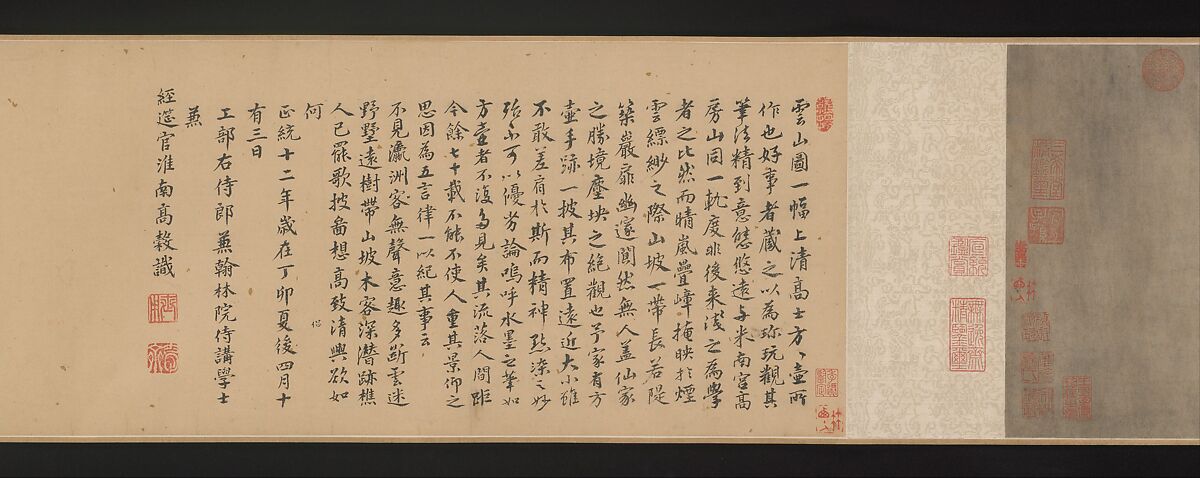 雲山圖一幅上清高士方〻壺所
作也好事者藏之以為珎玩觀其
筆法精到意態悠遠与米南宮高
房山同一軌度非後来淺之為學
者之比然而晴嵐疊嶂掩映於煙
雲縹緲之際山坡一帶長若隄
築巖扉幽邃闃然無人蓋仙家
之勝境塵坱之絕觀也予家有方
壺手跡一披其布置遠近大小雖
不敢差肩於斯而精神點染之妙
殆不可以優劣論嗚呼水墨之筆如
方壺者不復多見矣其流落人間距
今餘七十載不能不使人重其景仰之
思因為五言律一以紀其事云
不見瀛洲客無聲意趣多斷雲迷
野墅遠樹帶山坡木客深潛跡樵
人已罷歌披啚想高致清興欲如
何
正統十二年歲在丁卯夏後四月十
有三日
工部右侍郎兼翰林院侍講學士
兼
經筵官淮南高穀識